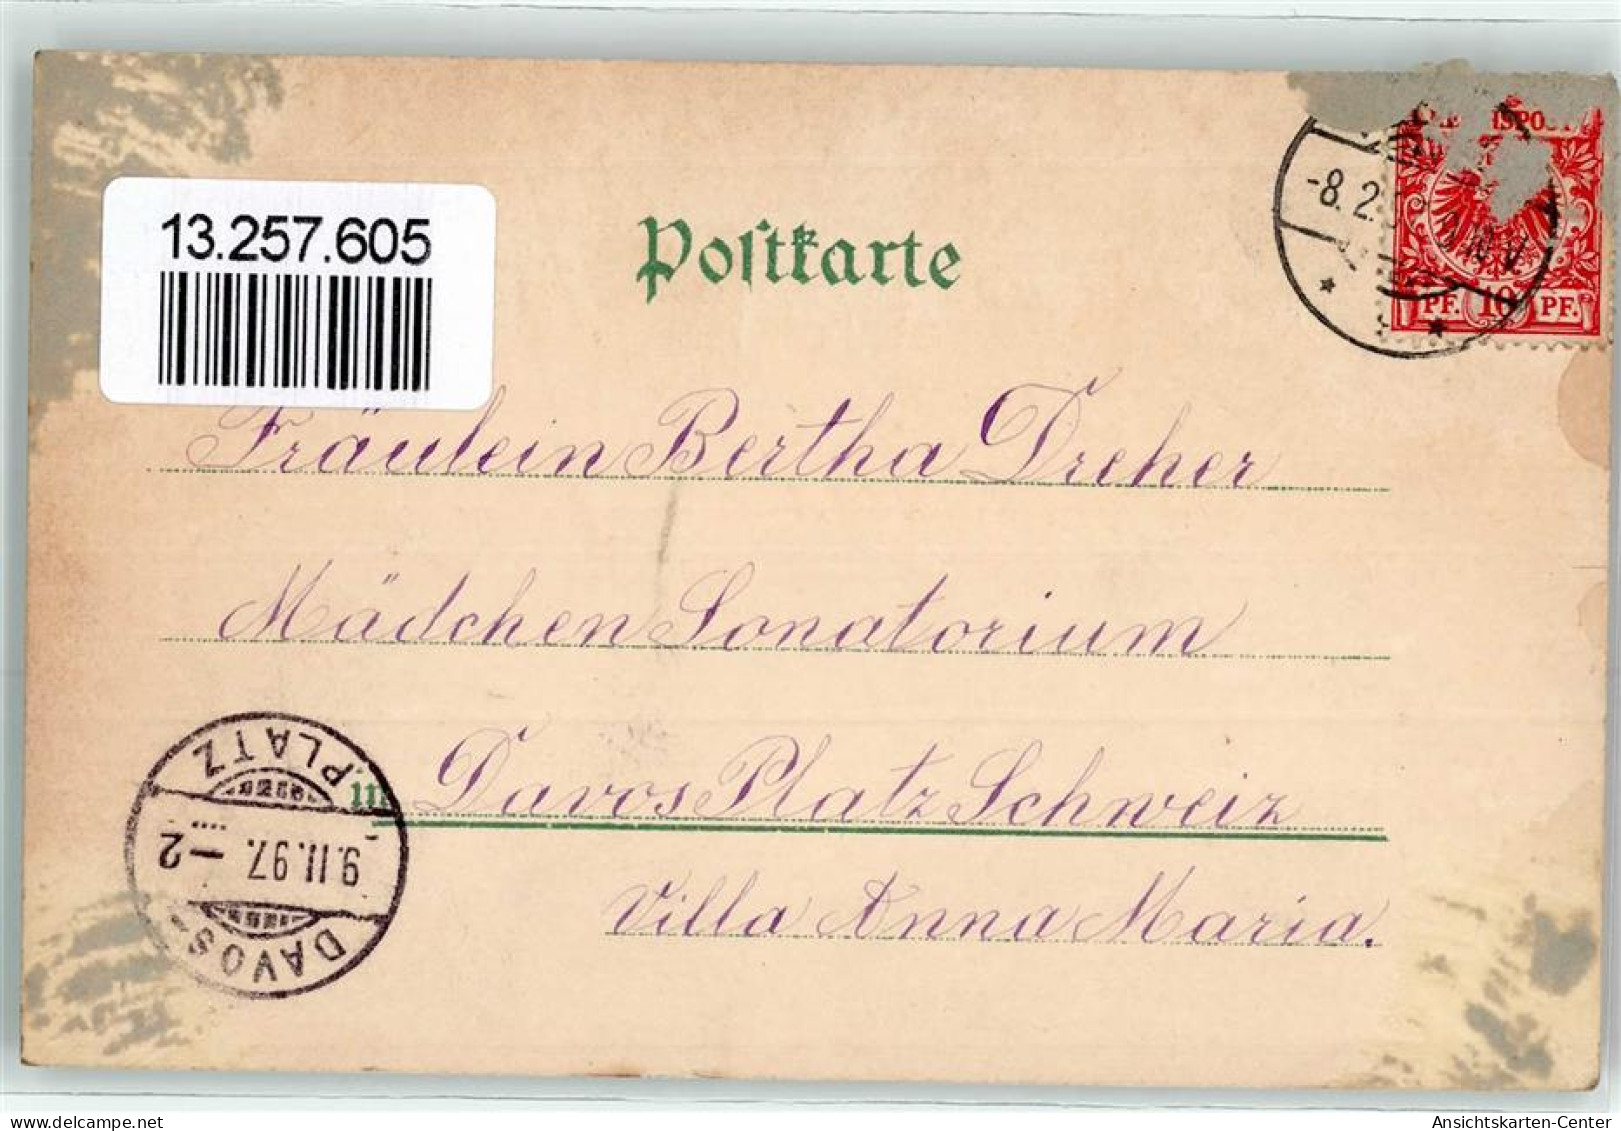 13.257.605
Postkarte
-8.2.
9-10 V
PF. 10 PF.
Fräulein Bertha Dreher
Mädchen Sonatorium
Davos Platz Schweiz
Villa Anna Maria.
DAVOS-PLATZ
9.II.97.–2
Ansichtskarten-Center